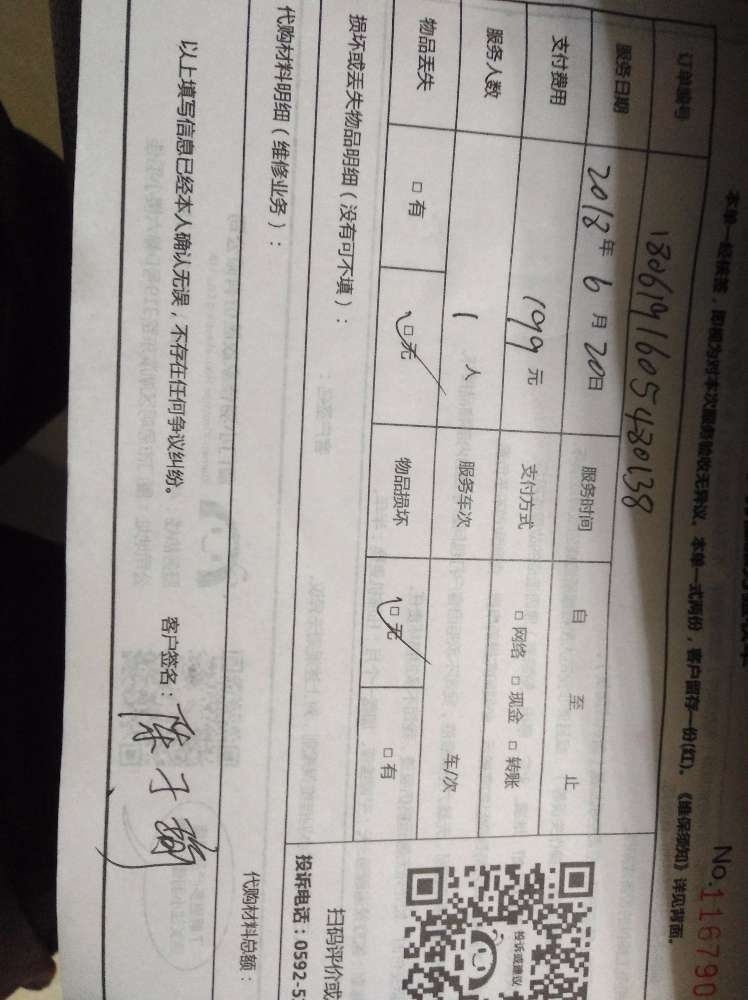 No.116790
本单一经核签，即视为对本次服务验收无异议。本单一式两份，客户留存一份(红)。《维保须知》详见背面。
订单编号 1806191605480138
服务日期 2018年6月20日 服务时间 自 至 止
支付费用 199元 支付方式 □网络 □现金 □转账
服务人数 1人 服务车次 车/次
物品丢失 □有 □无 物品损坏 □无 □有
损坏或丢失物品明细（没有可不填）：
投诉或建议
扫码评价或
投诉电话：0592-5
代购材料明细（维修业务）： 代购材料总额：
以上填写信息已经本人确认无误，不存在任何争议纠纷。 客户签名：陈子